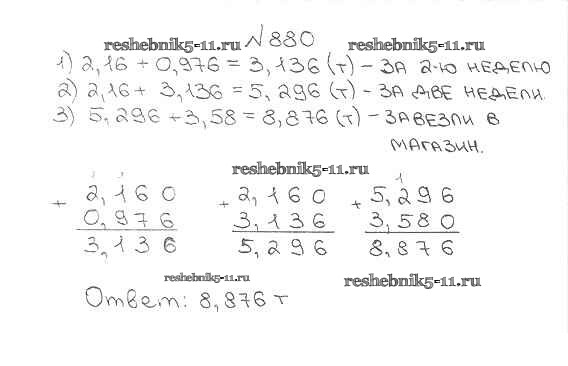 reshebnik5-11.ru №880 reshebnik5-11.ru
1) 2,16 + 0,976 = 3,136 (т) - ЗА 2-Ю НЕДЕЛЮ
2) 2,16 + 3,136 = 5,296 (т) - ЗА ДВЕ НЕДЕЛИ.
3) 5,296 + 3,58 = 8,876 (т) - ЗАВЕЗЛИ В
МАГАЗИН.
reshebnik5-11.ru
1 1 1
+ 2,160 + 2,160 + 5,296
0,976 3,136 3,580
3,136 5,296 8,876
reshebnik5-11.ru reshebnik5-11.ru
Ответ: 8,876 т